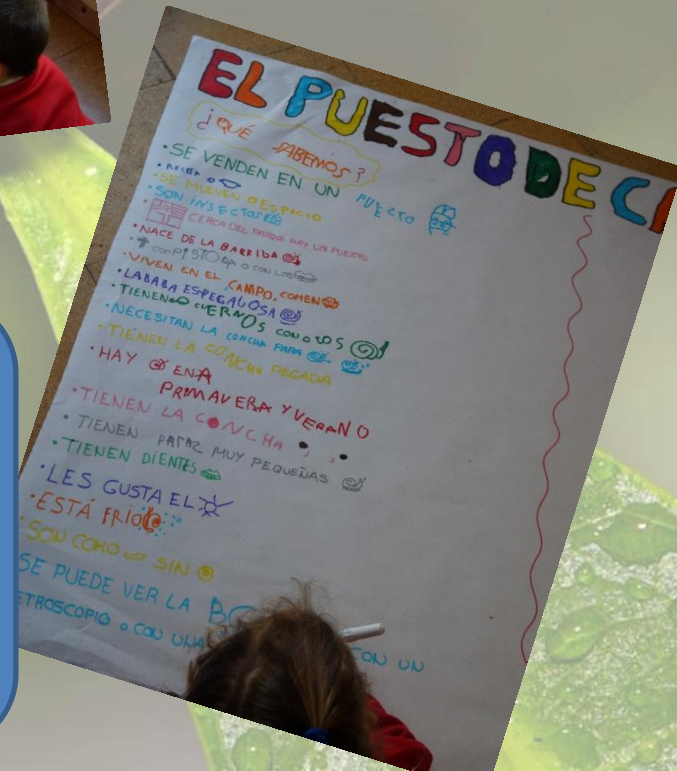 EL PUESTO DE C
¿QUÉ SABEMOS?
·SE VENDEN EN UN PUESTO
·
·SE MUEVEN DESPACIO
·SON INSECTOS
CERCA DEL PARQUE HAY UN PUESTO
·NACE DE LA BARRIGA
O CON LOS
·VIVEN EN EL CAMPO. COMEN
·LA BABA ES PEGAJOSA
·TIENEN CUERNOS CON OJOS
·NECESITAN LA CONCHA PARA
·TIENEN LA CONCHA PEGADA
·HAY EN
PRIMAVERA Y VERANO
·TIENEN LA CONCHA
·TIENEN PATAS MUY PEQUEÑAS
·TIENEN DIENTES
·LES GUSTA EL
·ESTÁ FRÍO
SON COMO SIN
SE PUEDE VER LA
ETROSCOPIO O CON UNA CON UN